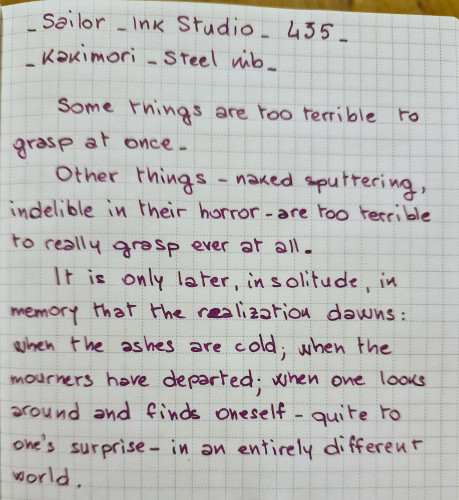 - Sailor - Ink Studio - 435 -
- Kakimori - Steel nib -
Some things are too terrible to
grasp at once -
Other things - naked sputtering,
indelible in their horror - are too terrible
to really grasp ever at all.
It is only later, in solitude, in
memory that the realization dawns:
when the ashes are cold; when the
mourners have departed; when one looks
around and finds oneself - quite to
one's surprise - in an entirely different
world.